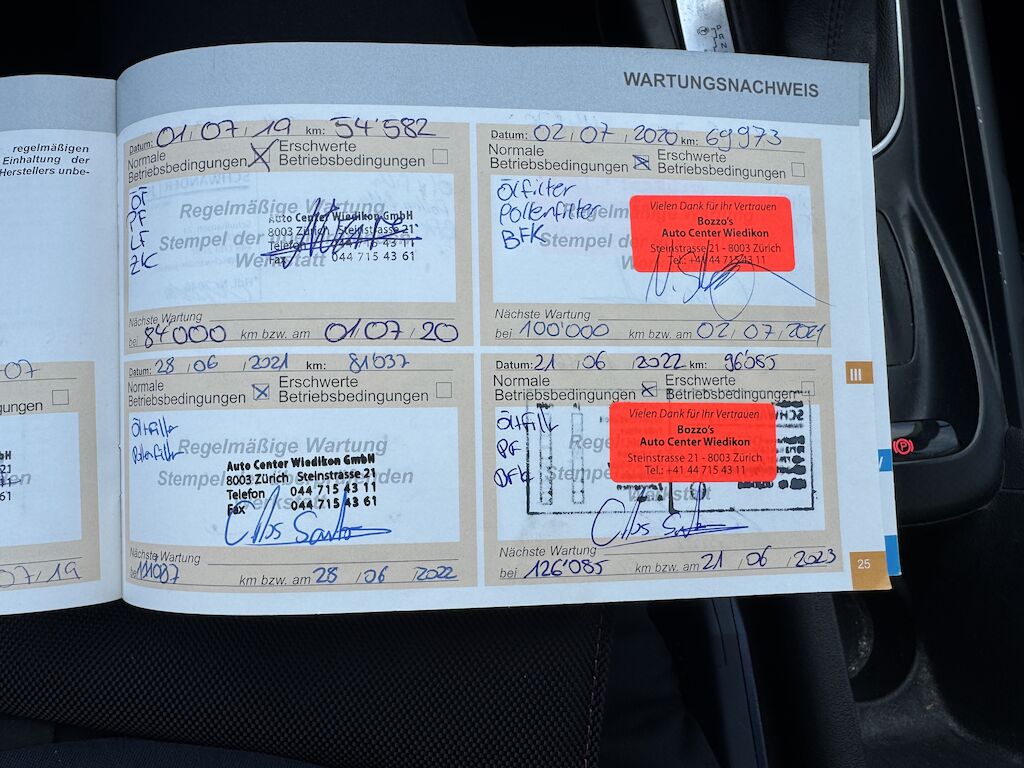 WARTUNGSNACHWEIS
regelmäßigen
Einhaltung der
Herstellers unbe-
Datum: 01/07/19 km: 54'582
Normale Betriebsbedingungen
Erschwerte Betriebsbedingungen
ÖF
PF
LF
ZK
Regelmäßige Wartung
Stempel der
Werkstatt
Auto Center Wiedikon GmbH
8003 Zürich Steinstrasse 21
Telefon 044 715 43 11
Fax 044 715 43 61
Nächste Wartung
bei 84'000 km bzw. am 01/07/20
Datum: 02/07/2020 km: 69'973
Normale Betriebsbedingungen
Erschwerte Betriebsbedingungen
Ölfilter
Pollenfilter
BFK
Vielen Dank für Ihr Vertrauen
Bozzo's
Auto Center Wiedikon
Steinstrasse 21 - 8003 Zürich
Tel.: +41 44 715 43 11
Nächste Wartung
bei 100'000 km bzw. am 02/07/2021
Datum: 28/06/2021 km: 81'037
Normale Betriebsbedingungen
Erschwerte Betriebsbedingungen
Pollenfilter
Regelmäßige Wartung
Auto Center Wiedikon GmbH
8003 Zürich Steinstrasse 21
Telefon 044 715 43 11
Fax 044 715 43 61
Nächste Wartung
bei km bzw. am 28/06/2022
Datum: 21/06/2022 km: 96'085
Normale Betriebsbedingungen
Erschwerte Betriebsbedingungen
PF
Vielen Dank für Ihr Vertrauen
Bozzo's
Auto Center Wiedikon
Steinstrasse 21 - 8003 Zürich
Tel.: +41 44 715 43 11
Werkstatt
Nächste Wartung
bei 126'085 km bzw. am 21/06/2023
III
25
07/19